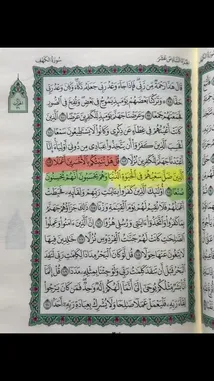 سورة الكهف
الجزء السادس عشر
قَالَ هَٰذَا رَحْمَةٌ مِّن رَّبِّي فَإِذَا جَاءَ وَعْدُ رَبِّي جَعَلَهُ دَكَّاءَ وَكَانَ وَعْدُ رَبِّي
حَقًّا ٩٨ وَتَرَكْنَا بَعْضَهُمْ يَوْمَئِذٍ يَمُوجُ فِي بَعْضٍ وَنُفِخَ فِي الصُّورِ
فَجَمَعْنَٰهُمْ جَمْعًا ٩٩ وَعَرَضْنَا جَهَنَّمَ يَوْمَئِذٍ لِّلْكَٰفِرِينَ عَرْضًا ١٠٠ الَّذِينَ
كَانَتْ أَعْيُنُهُمْ فِي غِطَاءٍ عَن ذِكْرِي وَكَانُوا لَا يَسْتَطِيعُونَ سَمْعًا ١٠١
أَفَحَسِبَ الَّذِينَ كَفَرُوا أَن يَتَّخِذُوا عِبَادِي مِن دُونِي أَوْلِيَاءَ إِنَّا
أَعْتَدْنَا جَهَنَّمَ لِلْكَٰفِرِينَ نُزُلًا ١٠٢ قُلْ هَلْ نُنَبِّئُكُم بِالْأَخْسَرِينَ أَعْمَٰلًا ١٠٣
الَّذِينَ ضَلَّ سَعْيُهُمْ فِي الْحَيَوٰةِ الدُّنْيَا وَهُمْ يَحْسَبُونَ أَنَّهُمْ يُحْسِنُونَ
صُنْعًا ١٠٤ أُولَٰئِكَ الَّذِينَ كَفَرُوا بِـَٔايَٰتِ رَبِّهِمْ وَلِقَائِهِ فَحَبِطَتْ
أَعْمَٰلُهُمْ فَلَا نُقِيمُ لَهُمْ يَوْمَ الْقِيَٰمَةِ وَزْنًا ١٠٥ ذَٰلِكَ جَزَاؤُهُمْ جَهَنَّمُ
بِمَا كَفَرُوا وَاتَّخَذُوا ءَايَٰتِي وَرُسُلِي هُزُوًا ١٠٦ إِنَّ الَّذِينَ ءَامَنُوا وَعَمِلُوا
الصَّٰلِحَٰتِ كَانَتْ لَهُمْ جَنَّٰتُ الْفِرْدَوْسِ نُزُلًا ١٠٧ خَٰلِدِينَ فِيهَا
لَا يَبْغُونَ عَنْهَا حِوَلًا ١٠٨ قُل لَّوْ كَانَ الْبَحْرُ مِدَادًا لِّكَلِمَٰتِ رَبِّي لَنَفِدَ
الْبَحْرُ قَبْلَ أَن تَنفَدَ كَلِمَٰتُ رَبِّي وَلَوْ جِئْنَا بِمِثْلِهِ مَدَدًا ١٠٩ قُلْ إِنَّمَا
أَنَا بَشَرٌ مِّثْلُكُمْ يُوحَىٰ إِلَيَّ أَنَّمَا إِلَٰهُكُمْ إِلَٰهٌ وَٰحِدٌ فَمَن كَانَ يَرْجُوا
لِقَاءَ رَبِّهِ فَلْيَعْمَلْ عَمَلًا صَٰلِحًا وَلَا يُشْرِكْ بِعِبَادَةِ رَبِّهِ أَحَدًا ١١٠